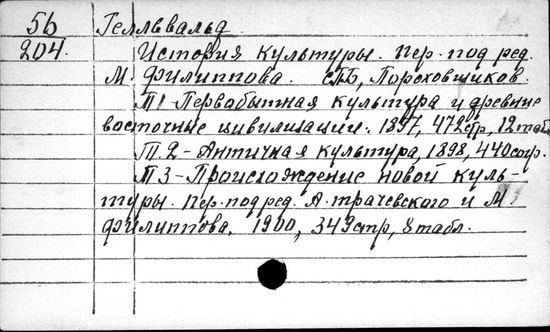 5б Геллввальд
204. История культуры. Пер. под ред.
М. Филиппова. СПБ, Пороховщиков.
Т1-Первобытная культура и древние
восточные цивилизации. 1897, 472стр, 12табл
Т.2-Античная культура, 1898, 440стр.
Т3-Происхождение новой куль-
туры. Пер. под ред. А. Трачевского и М
Филиппова. 1900, 349стр, 8 табл.